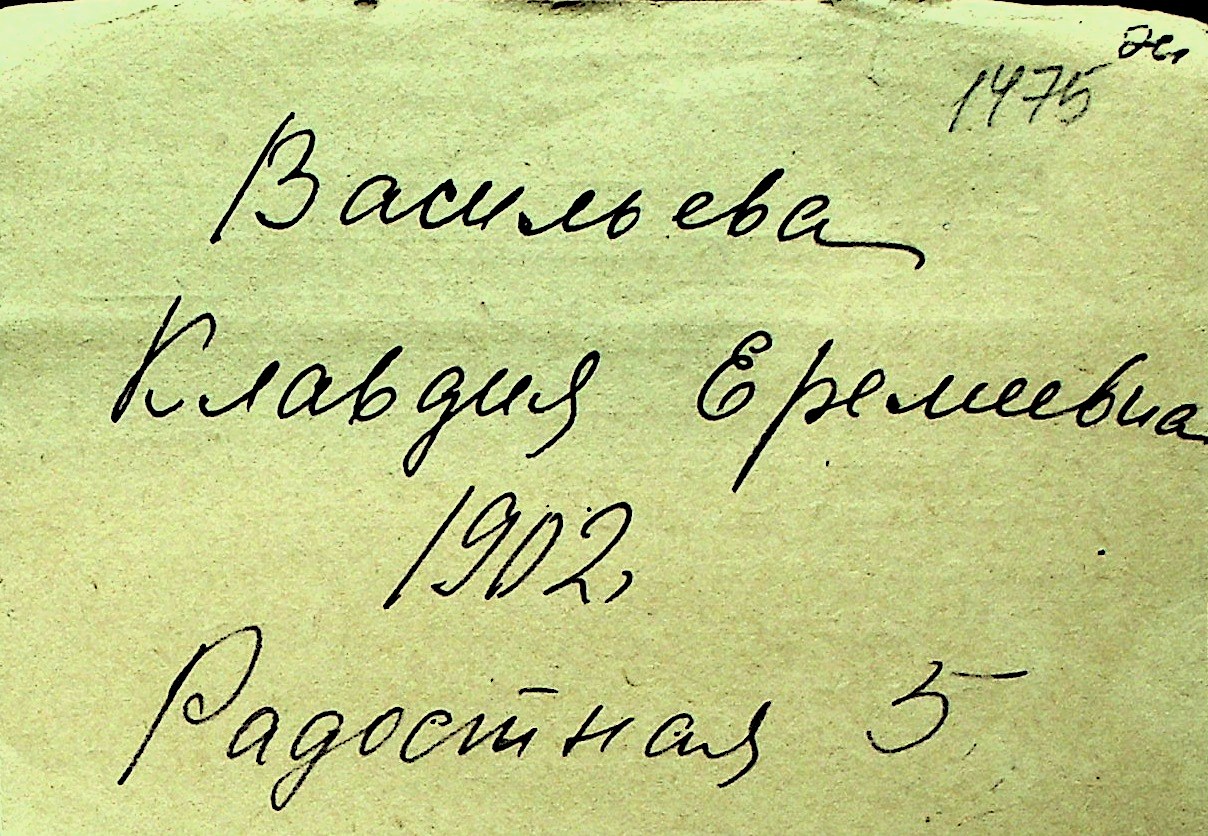 1475
Васильева
Клавдия Еремеевна
1902,
Радостная 5